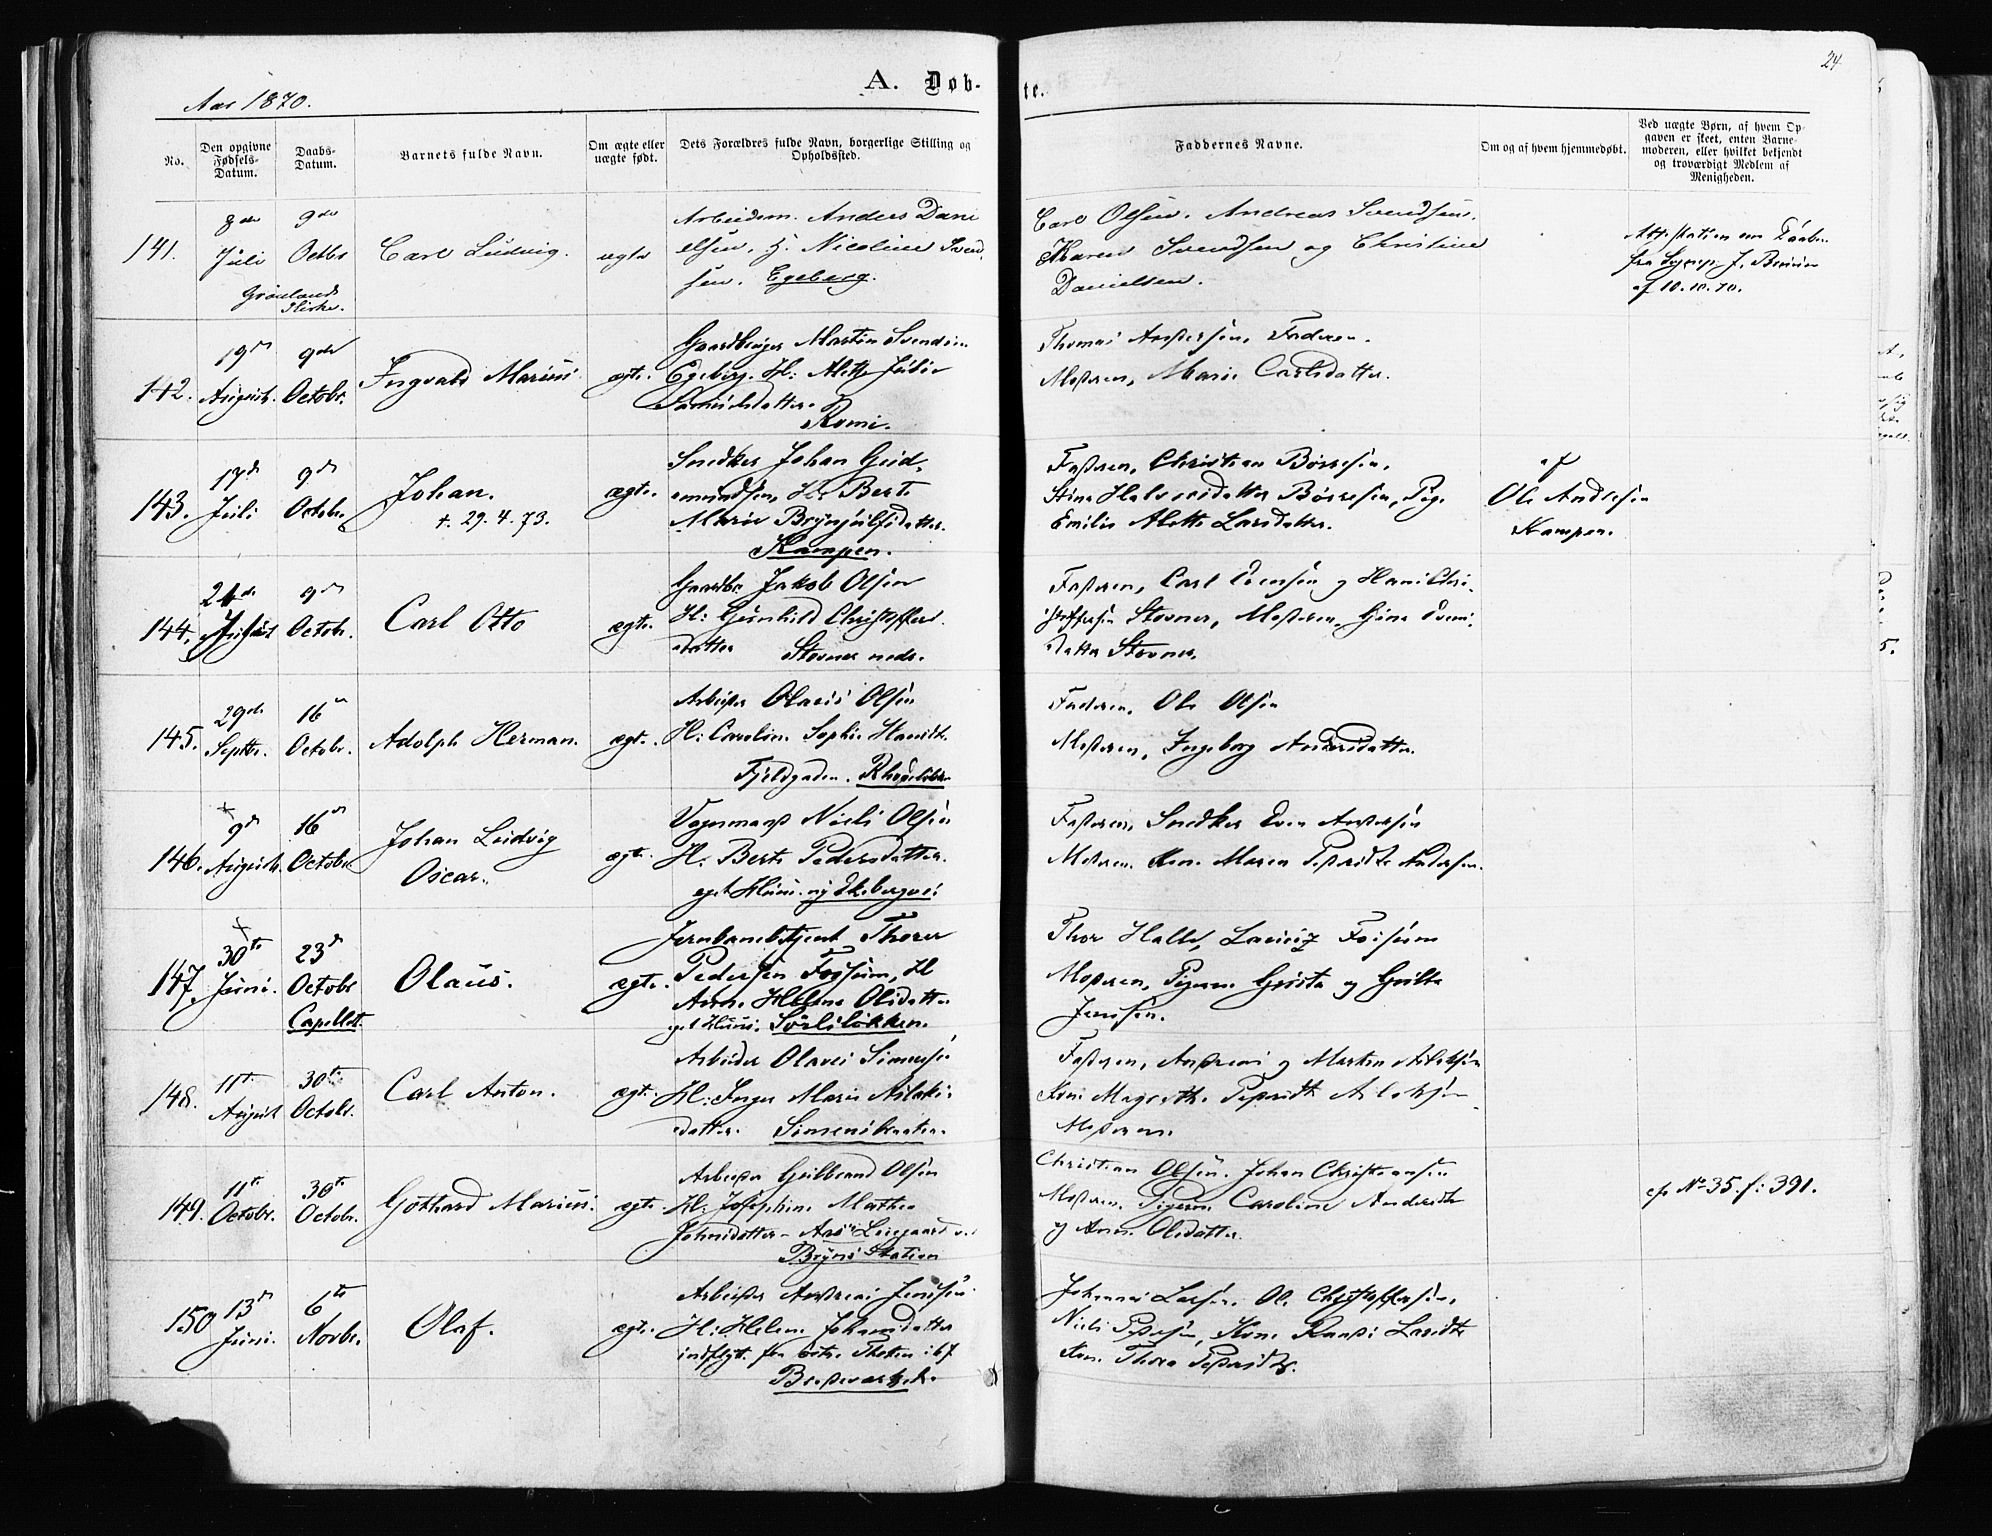 24.
Aar 1870.
A. Døb-
te.
No.
Den opgivne Fødsels-Datum.
Daabs-Datum.
Barnets fulde Navn.
Om ægte eller uægte født.
Dets Forældres fulde Navn, borgerlige Stilling og Opholdssted.
Faddernes Navne.
Om og af hvem hjemmedøbt.
Ved uægte Børn, af hvem Op-
gaven er skeet, enten Barne-
moderen, eller hvilket bekjendt
og troværdigt Medlem af
Menigheden.
141.
8de
Juli
Grønlands
Kirke.
9de
Octbr
Carl Ludvig.
ægte
Arbeidsm. Anders Dani
elsen, H. Nicoline Svend
sen. Egeberg.
Carl Olsen. Andreas Svendsen.
Karen Svendsen og Christine
Danielsen.
Attestation om Daaben
fra
af 10.10.70.
142.
19de
August.
9de
Octobr.
Ingvald Marius.
ægte.
Martin Svendsen
Egeberg. H: Mette Julie
Samuelsdatter.
Thomas Andersen, Faderen.
Moderen, Marie Carlsdatter.
143.
17de
Juli
9de
Octobr.
Johan.
+. 29.4.73.
ægte.
Snedker Johan Gud-
mundsen, H: Berte
Marie Brynjulfsdatter.
Kampen.
Faderen, Christian Børresen,
Stine Halvorsdatter Børresen, Pige
Emilie Alette Larsdatter.
af
Ole Andresen
Kampen.
144.
21de
August
9de
Octobr.
Carl Otto
ægte.
Gaardbr. Jakob Olsen
H: Gunhild Christoffers-
datter Stovner nedr.
Faderen, Carl Evensen og Hans Chri-
stoffersen Stovner, Moderen, Gina Evens-
datter Stovner.
145.
29de
Septbr.
16de
Octobr.
Adolph Herman.
ægte.
Arbeider Olaus Olsen
H: Caroline Sophie Hansdtr.
Fjeldgaden.
Faderen, Ole Olsen
Moderen, Ingeborg Andersdatter.
146.
9de
August.
16de
Octobr.
Johan Ludvig
Oscar.
ægte.
Vognmand Niels Olsen
H: Berte Pedersdatter.
eget Huus. ny Ekebergvei
Faderen, Snedker Even Andersen
Moderen. Kone Maren Andersen.
147.
30te
Juni.
23de
Octobr
Capellet.
Olaus.
ægte.
Jernbanebetjent Thorer
Pedersen Fossum, H
Anne Helene Olsdatter
eget Huus. Sørliløkken.
Thor Halle, Fossum
Moderen, Pigerne Gusta og Gulla
Jensen.
148.
11te
August
30te
Octobr.
Carl Anton.
ægte.
Arbeider Olaves Simensen
H: Inger Marie Aslaks-
datter. Simensbraaten.
Faderen, Andreas og Martin Aslaksen
Kone Magrethe
Moderen.
149.
11te
Octobr.
30te
Octobr.
Gothard Marius.
ægte.
Arbeider Gulbrand Olsen
H: Josephine Mathea
Johnsdatter
Bryns Station
Christian Olsen. Johan Christiansen
Moderen. Pigerne Caroline Andersdtr
og Anne Olsdatter.
cfr No 35. f: 391.
150
13de
Juni.
6te
Novbr.
Olaf.
ægte.
Arbeider Andreas Jensen
H: Helene Johansdatter
indflyt. fra østre Thoten i 67
Johannes Larsen. Ole Christoffersen,
Niels Pedersen, Kone Randi Larsdtr
Kone Thora Pedersdtr.